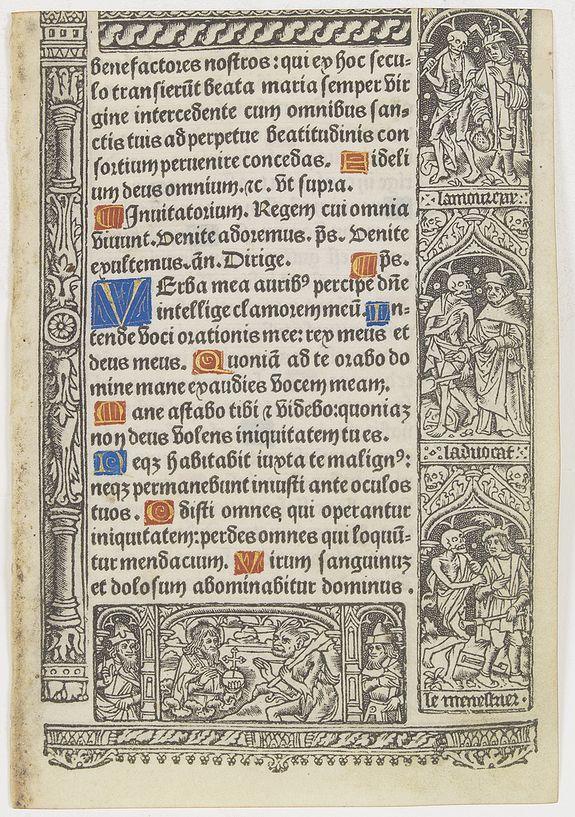 benefactores nostros: qui ex hoc secu-
lo transierũt beata maria semper vir
gine intercedente cum omnibus san-
ctis tuis ad perpetue beatitudinis con
sortium peruenire concedas. Fideli
um deus omnium. ⁊c. vt supra.
Inuitatorium. Regem cui omnia
viuunt. Venite adoremus. p̃s. Venite
exultemus. añ. Dirige. p̃s.
VErba mea auribꝰ percipe dñe
intellige clamorem meũ. In-
tende voci orationis mee: rex meus et
deus meus. Quoniã ad te orabo do
mine mane exaudies vocem meam.
Mane astabo tibi ⁊ videbo: quoniaꝫ
non deus volens iniquitatem tu es.
Neqꝫ habitabit iuxta te malignꝰ:
neqꝫ permanebunt iniusti ante oculos
tuos. Odisti omnes qui operantur
iniquitatem: perdes omnes qui loquũ-
tur mendacium. Virum sanguinuꝫ
et dolosum abominabitur dominus.
lamoureux
laduocat
le menestrier.